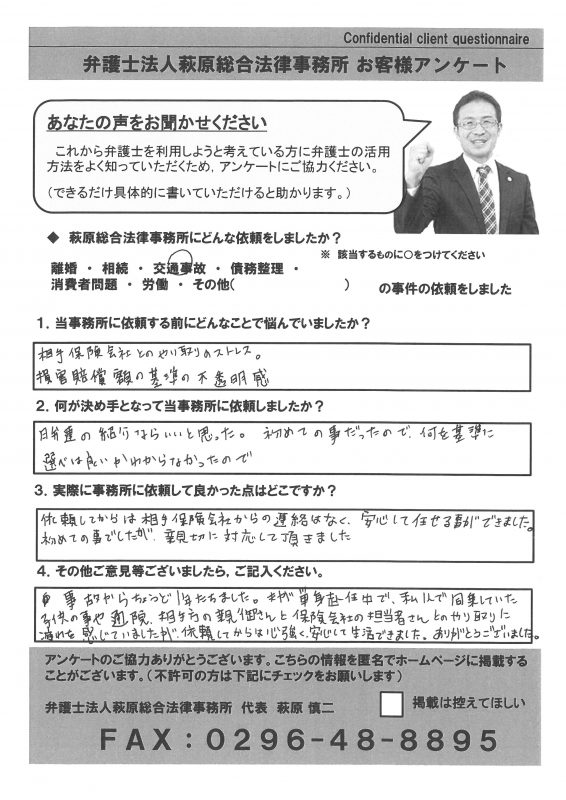 Confidential client questionnaire
弁護士法人萩原総合法律事務所 お客様アンケート
あなたの声をお聞かせください
これから弁護士を利用しようと考えている方に弁護士の活用
方法をよく知っていただくため，アンケートにご協力ください。
（できるだけ具体的に書いていただけると助かります。）
◆ 萩原総合法律事務所にどんな依頼をしましたか？
※ 該当するものに○をつけてください
離婚 ・ 相続 ・ 交通事故 ・ 債務整理 ・
消費者問題 ・ 労働 ・ その他（ ） の事件の依頼をしました
１．当事務所に依頼する前にどんなことで悩んでいましたか？
相手保険会社とのやり取りのストレス。
損害賠償額の基準の不透明感
２．何が決め手となって当事務所に依頼しましたか？
日弁連の紹介ならいいと思った。 初めての事だったので、何を基準に
選べば良いかわからなかったので
３．実際に事務所に依頼して良かった点はどこですか？
依頼してからは相手保険会社からの連絡はなく、安心して任せる事ができました。
初めての事でしたが、親切に対応して頂きました
４．その他ご意見等ございましたら，ご記入ください。
事故からちょうど1年たちました。夫が単身赴任中で、私1人で同乗していた
子供の事や通院、相手方の親御さんと保険会社の担当者さんとのやり取りに
疲れを感じていましたが依頼してからは心強く、安心して生活できました。ありがとうございました。
アンケートのご協力ありがとうございます。こちらの情報を匿名でホームページに掲載する
ことがございます。（不許可の方は下記にチェックをお願いします）
弁護士法人萩原総合法律事務所 代表 萩原 慎二
掲載は控えてほしい
ＦＡＸ：０２９６－４８－８８９５